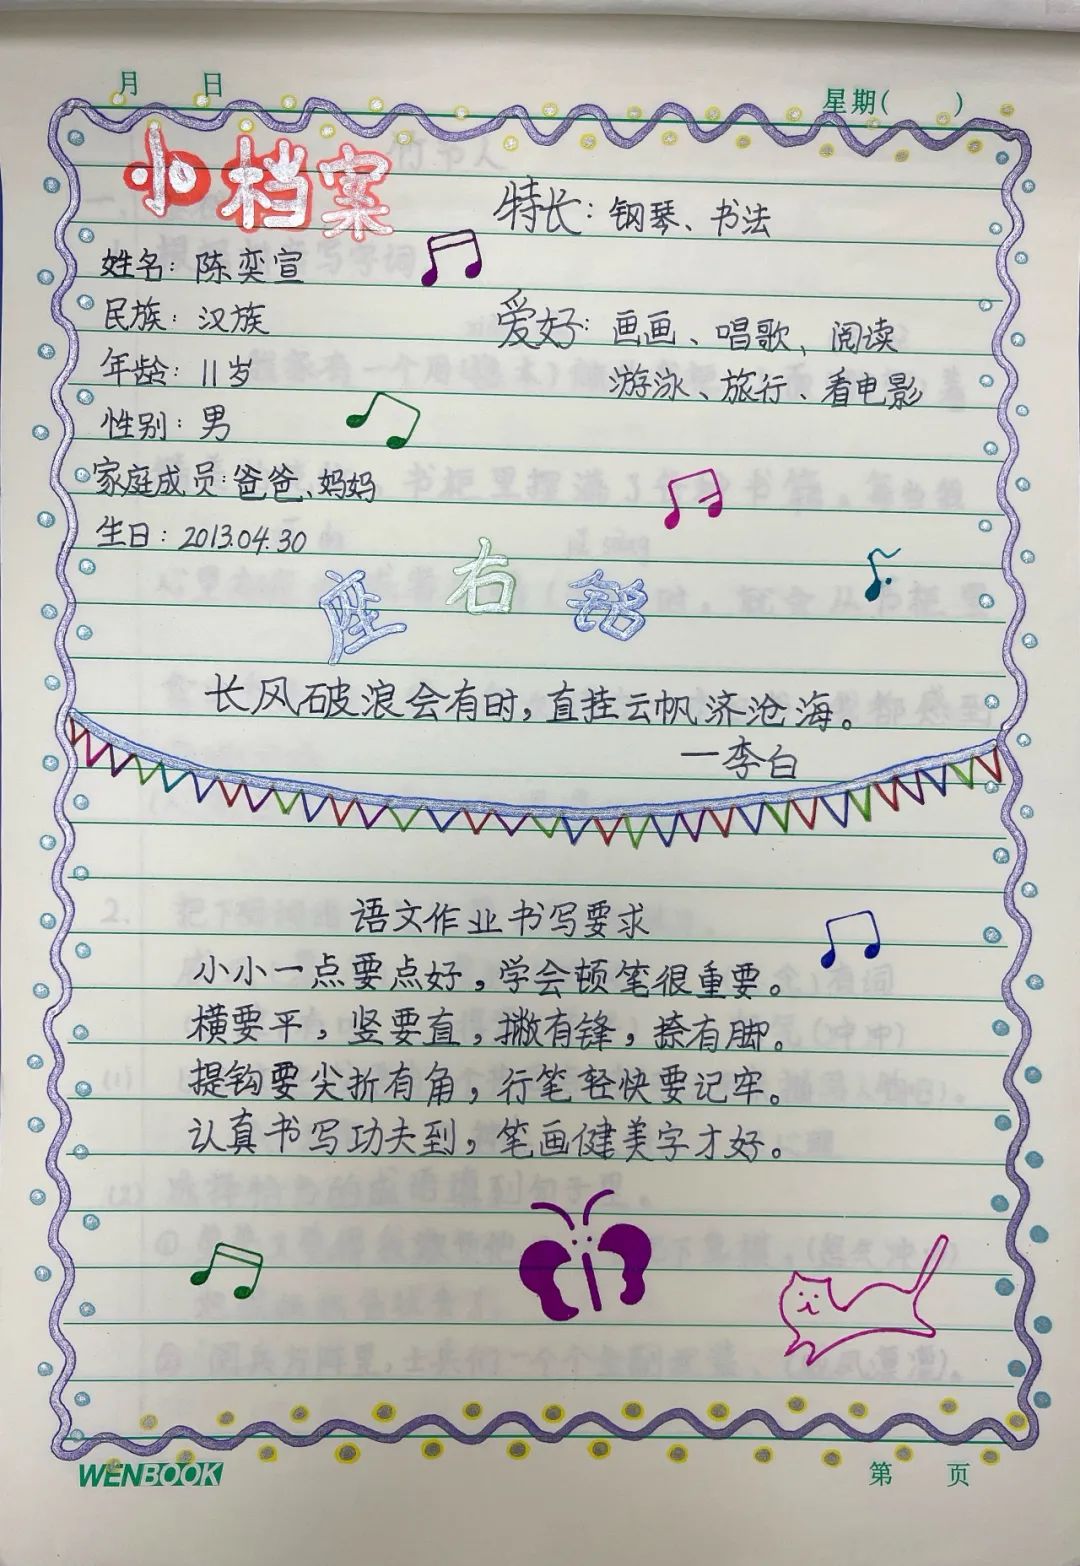 月 日
星期( )
小档案
姓名：陈奕宣
民族：汉族
年龄：11岁
性别：男
家庭成员：爸爸、妈妈
生日：2013.04.30
特长：钢琴、书法
爱好：画画、唱歌、阅读
游泳、旅行、看电影
座右铭
长风破浪会有时，直挂云帆济沧海。
—李白
语文作业书写要求
小小一点要点好，学会顿笔很重要。
横要平，竖要直，撇有锋，捺有脚。
提钩要尖折有角，行笔轻快要记牢。
认真书写功夫到，笔画健美字才好。
WENBOOK
第 页